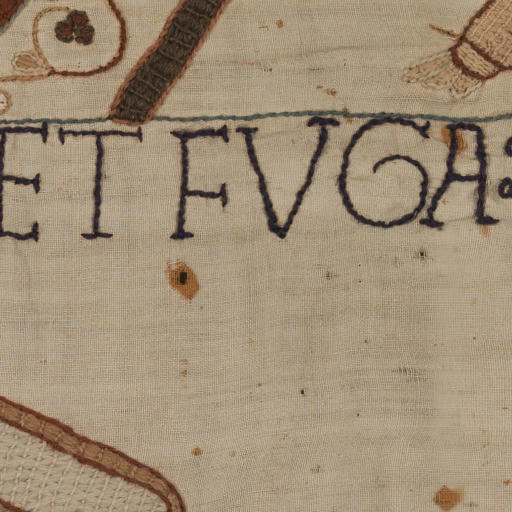 ET FVGA: